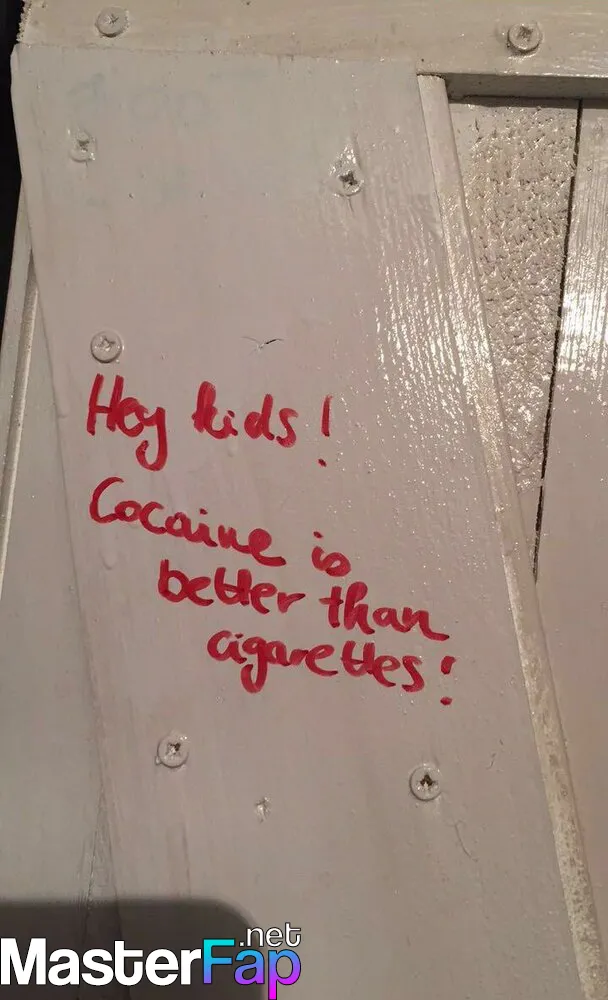 Hey kids!
Cocaine is
better than
cigarettes!
.net
MasterFap